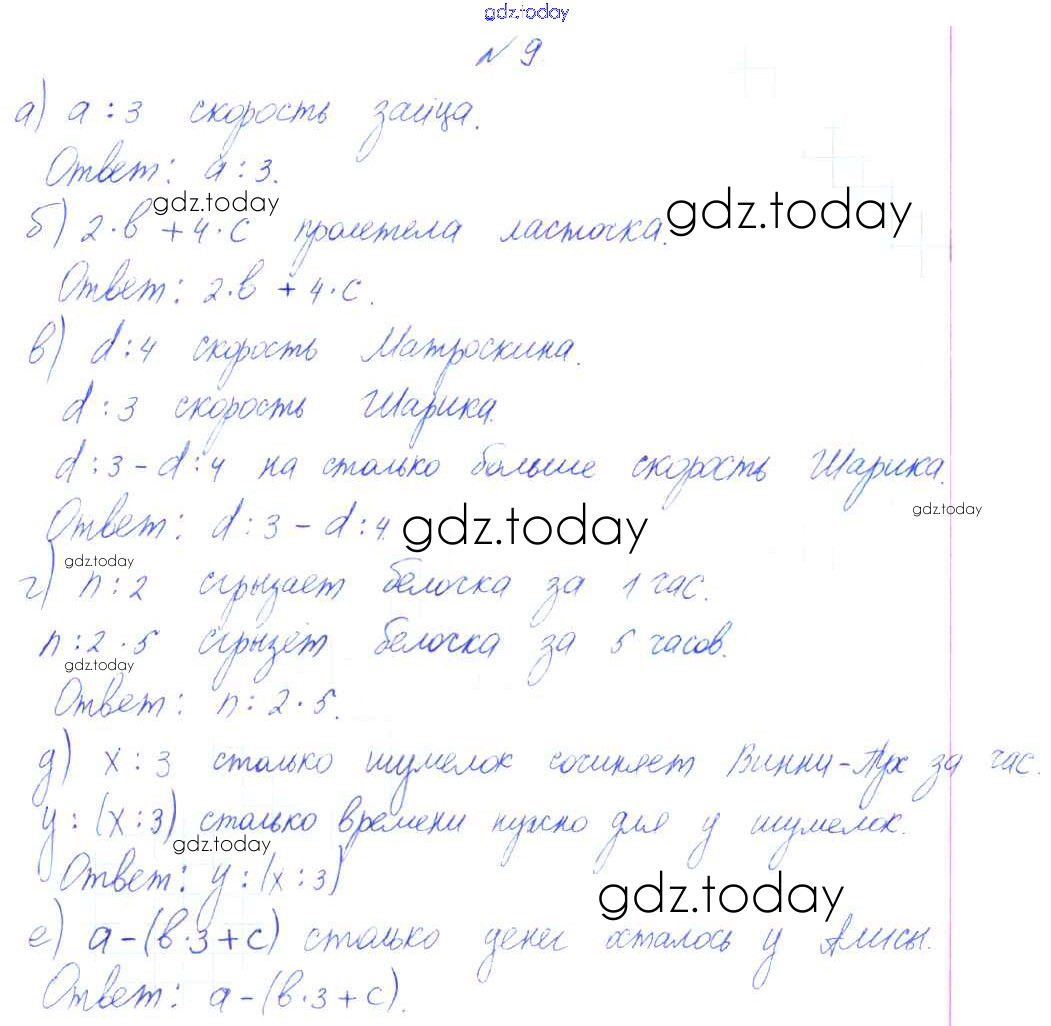 gdz.today
№ 9
а) a : 3 скорость зайца.
Ответ: a : 3.
gdz.today
gdz.today
б) 2·b + 4·c пролетела ласточка.
Ответ: 2·b + 4·c.
в) d : 4 скорость Матроскина.
d : 3 скорость Шарика.
d : 3 - d : 4 на столько больше скорость Шарика.
gdz.today
Ответ: d : 3 - d : 4.
gdz.today
gdz.today
г) n : 2 сгрызает белочка за 1 час.
n : 2 · 5 сгрызёт белочка за 5 часов.
gdz.today
Ответ: n : 2 · 5.
д) x : 3 столько шумелок сочиняет Винни-Пух за час.
y : (x : 3) столько времени нужно для y шумелок.
gdz.today
Ответ: y : (x : 3)
gdz.today
е) a - (b·3 + c) столько денег осталось у Алисы.
Ответ: a - (b·3 + c).